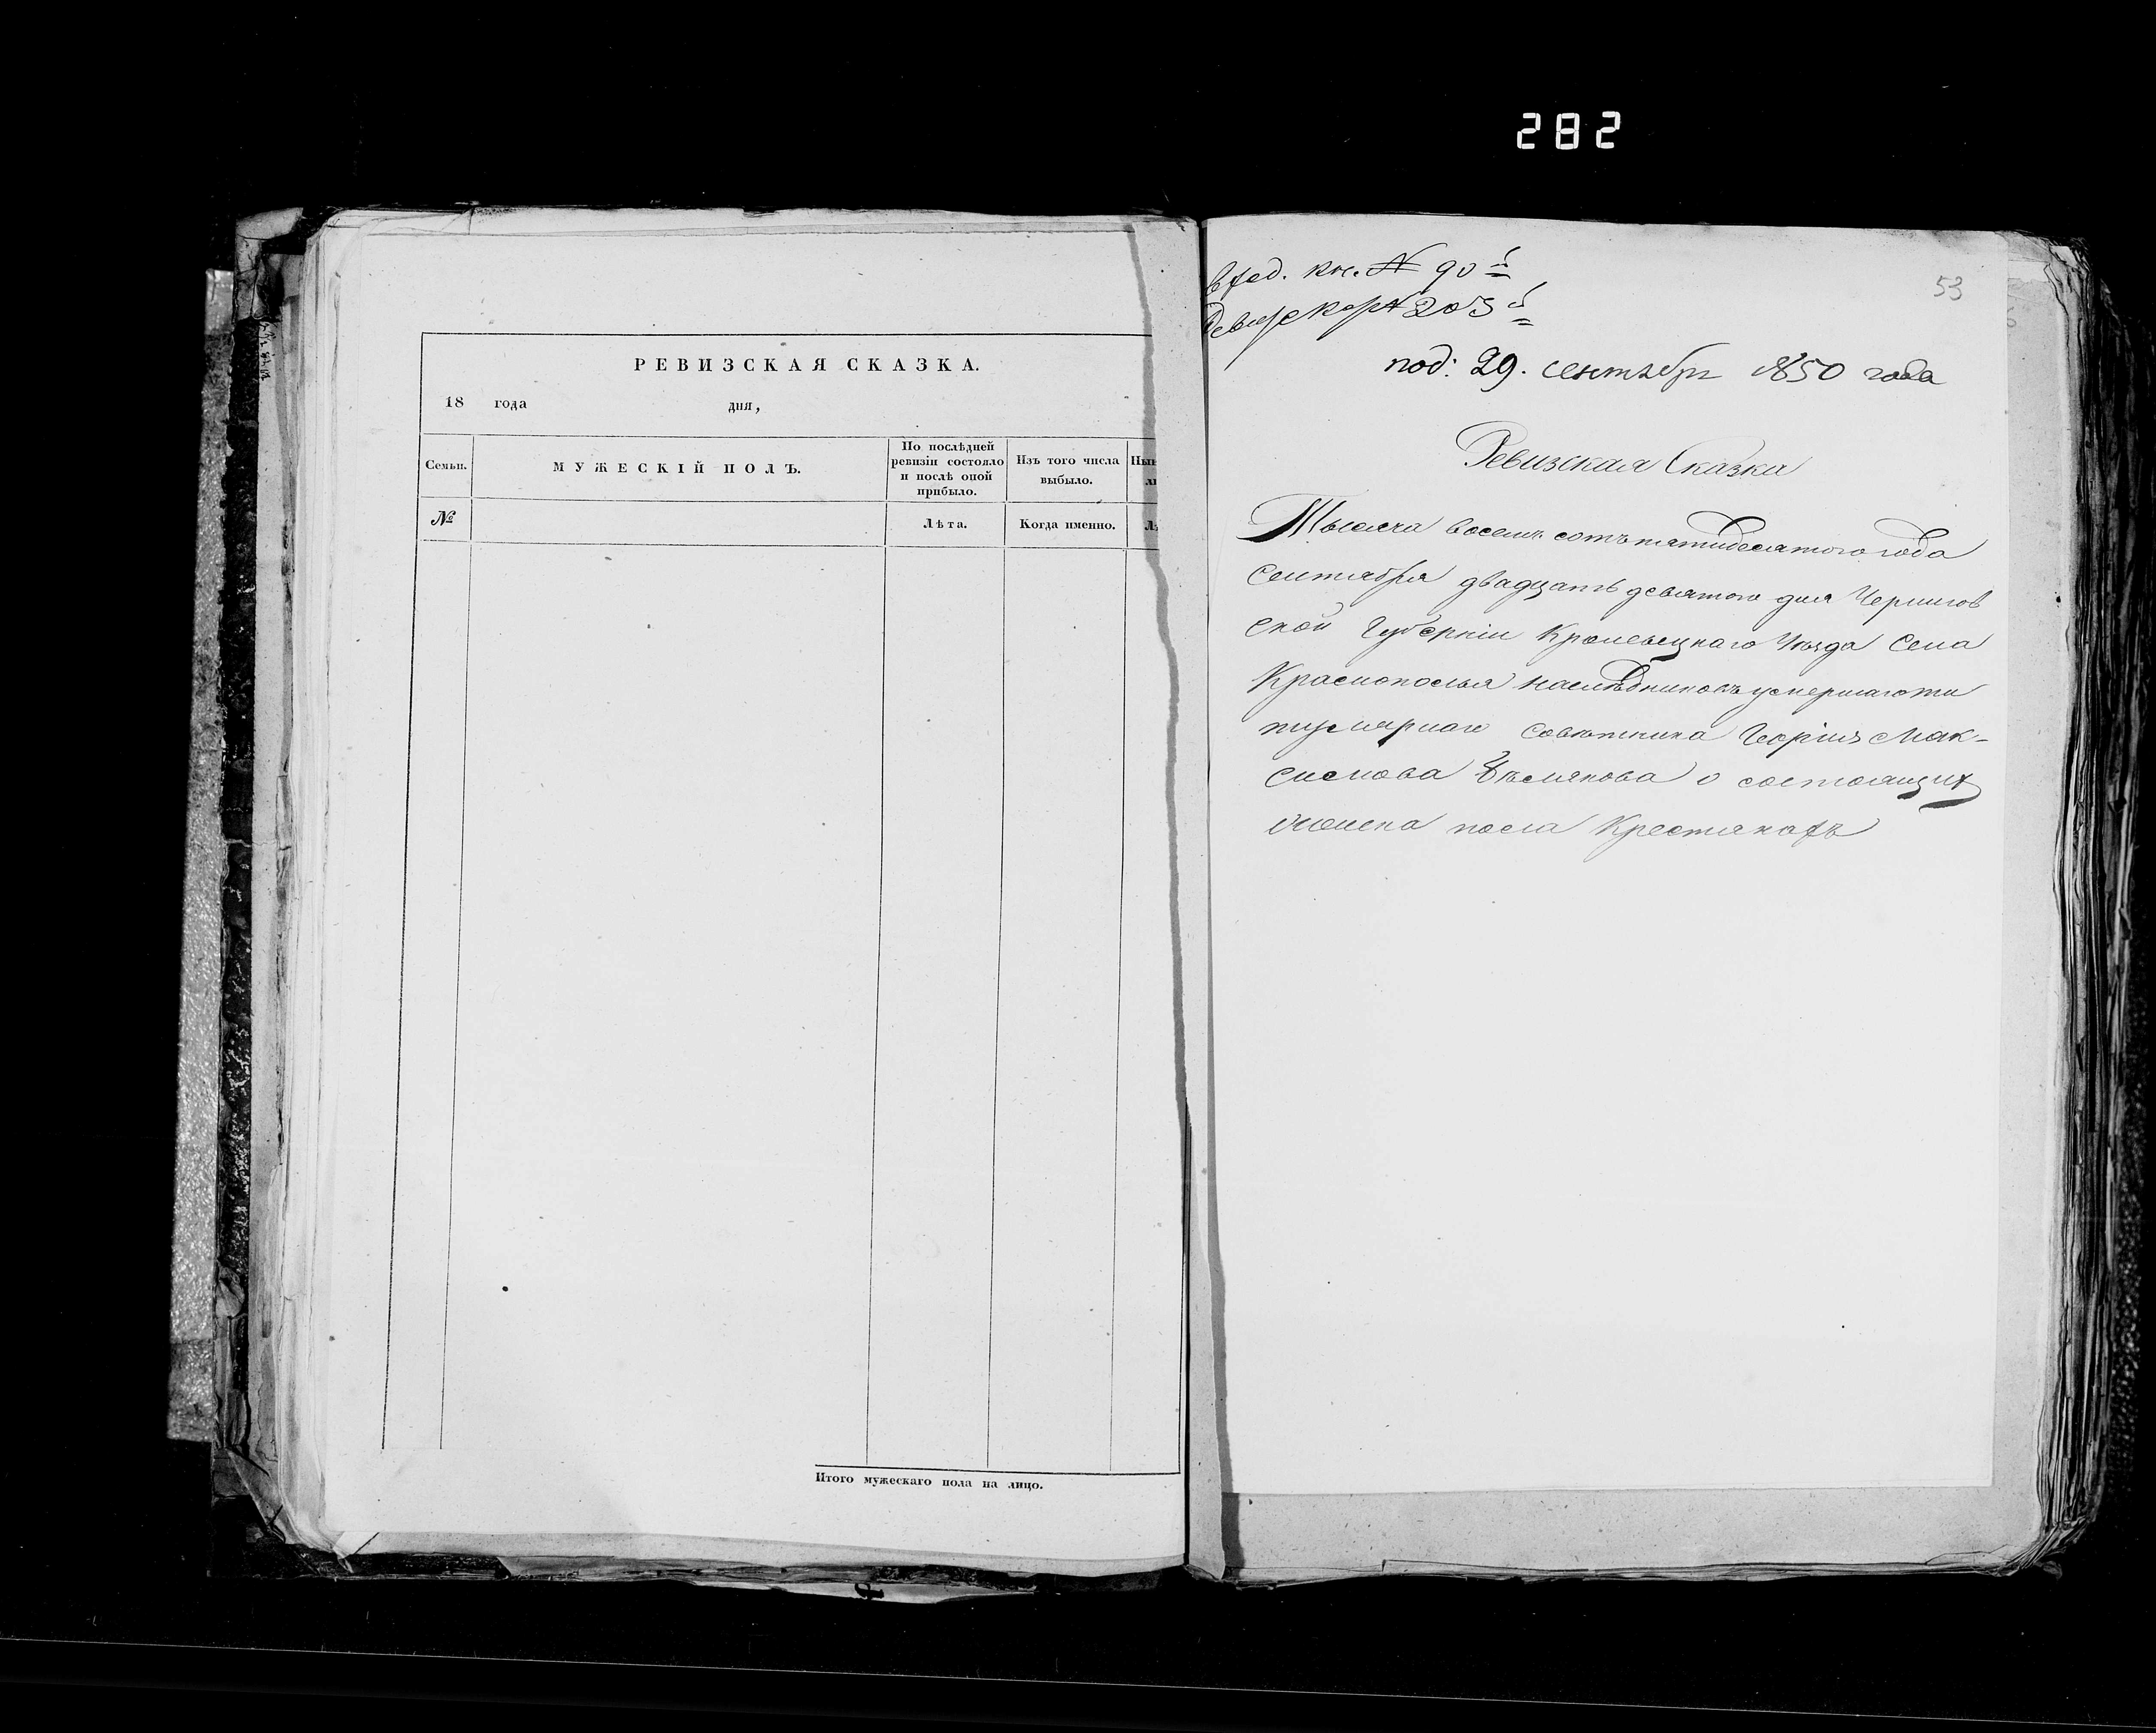 282
РЕВИЗСКАЯ СКАЗКА.
18 года дня,
Семьи.
МУЖЕСКІЙ ПОЛЪ.
По послѣдней
ревизіи состояло
и послѣ оной
прибыло.
Изъ того числа
выбыло.
№
Лѣта.
Когда именно.
Итого мужескаго пола на лицо.
53
вход. кн. № 90й
№ 205й
под: 29. сентября 1850 года
Ревизская Сказка
Тысяча восемь сотъ пятидесятого года
Сентября двадцать девятого дня Чернигов
ской Губерніи Кролевецкаго Уѣзда Села
Краснополья наслѣдниковъ умершаго ти
тулярнаго Совѣтника Георгія Мак-
симова о состоящих
пола Крестянахъ